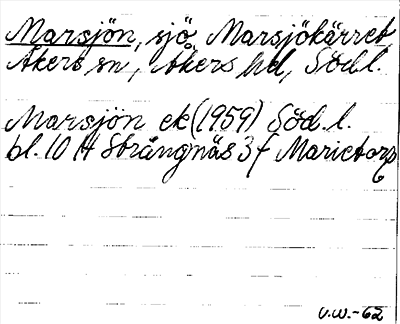 Marsjön, sjö, Marsjökärret,
Åkers sn, Åkers hd, Södl.
Marsjön ek (1959) Söd. l.
bl. 10 H Strängnäs 3 f Marietorp
U.W.-62